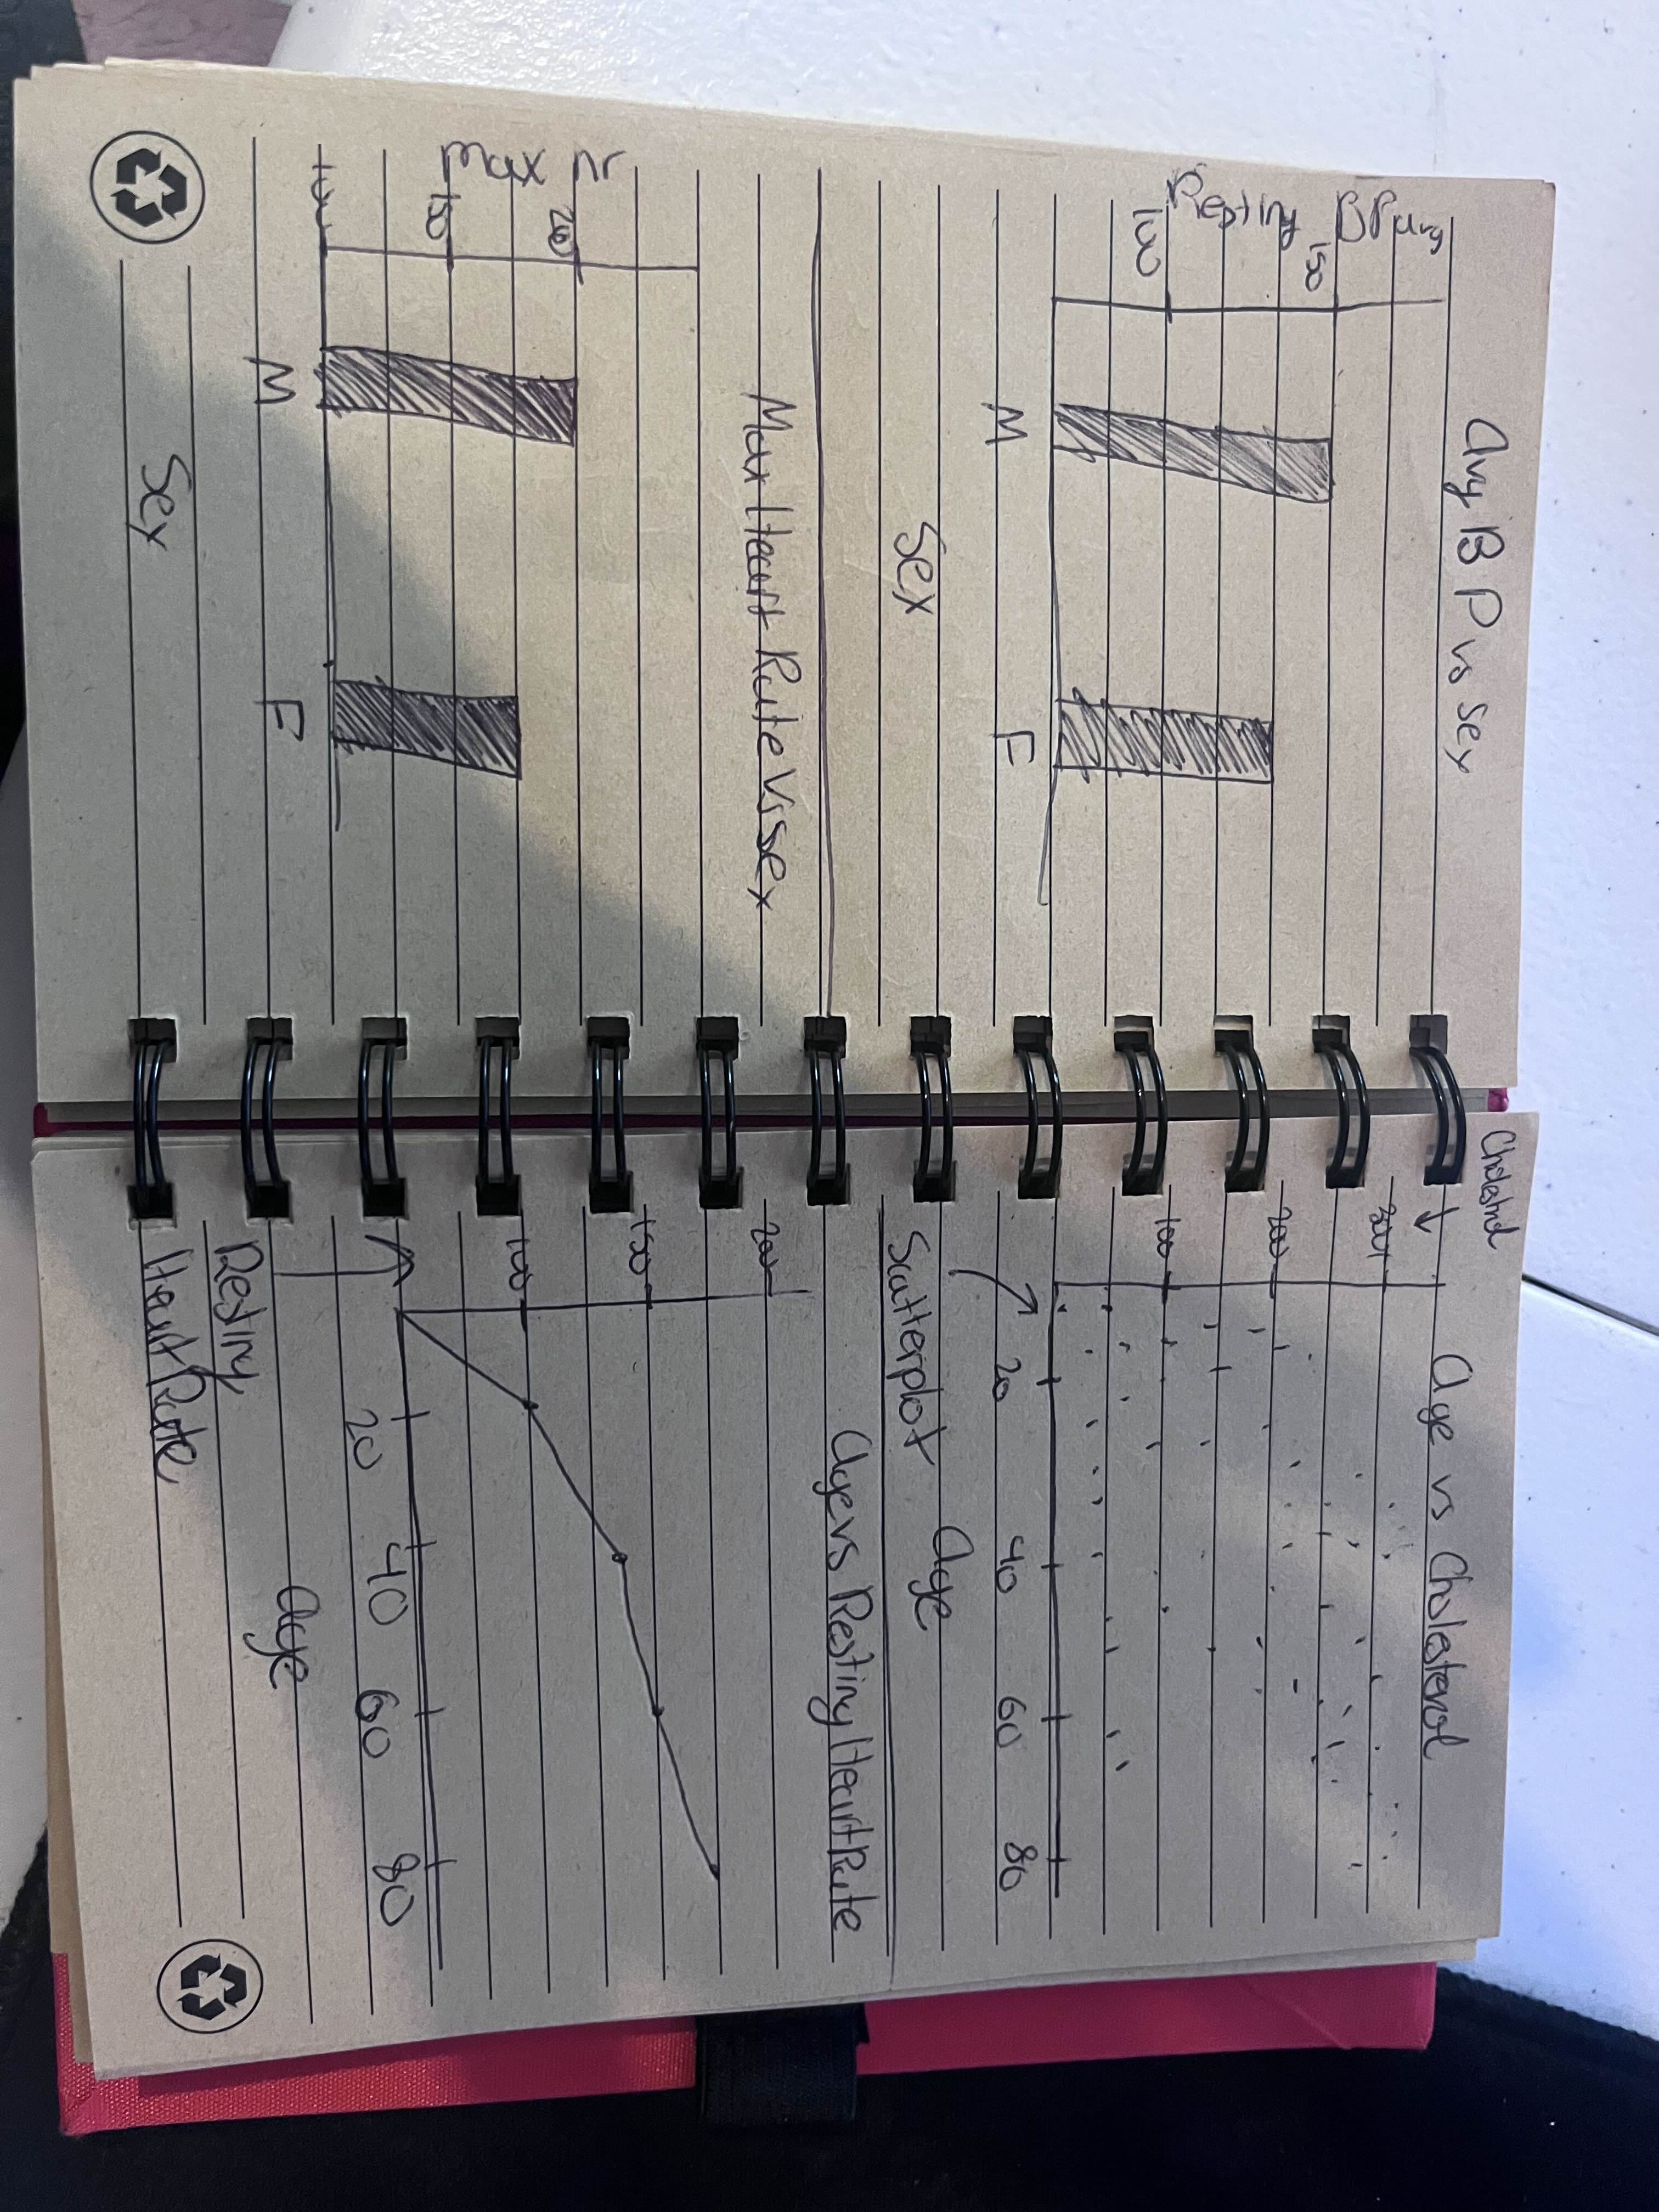 Avg BP vs Sex
Resting BPavg
150
100
M
F
Sex
Max Heart Rate Vs Sex
Max hr
200
150
100
M
F
Sex
Cholesterol
Age vs Cholesterol
300
200
100
20
40
60
80
Age
Scatterplot
Age vs Resting Heart Rate
200
150
100
20
40
60
80
Age
Resting
Heart Rate